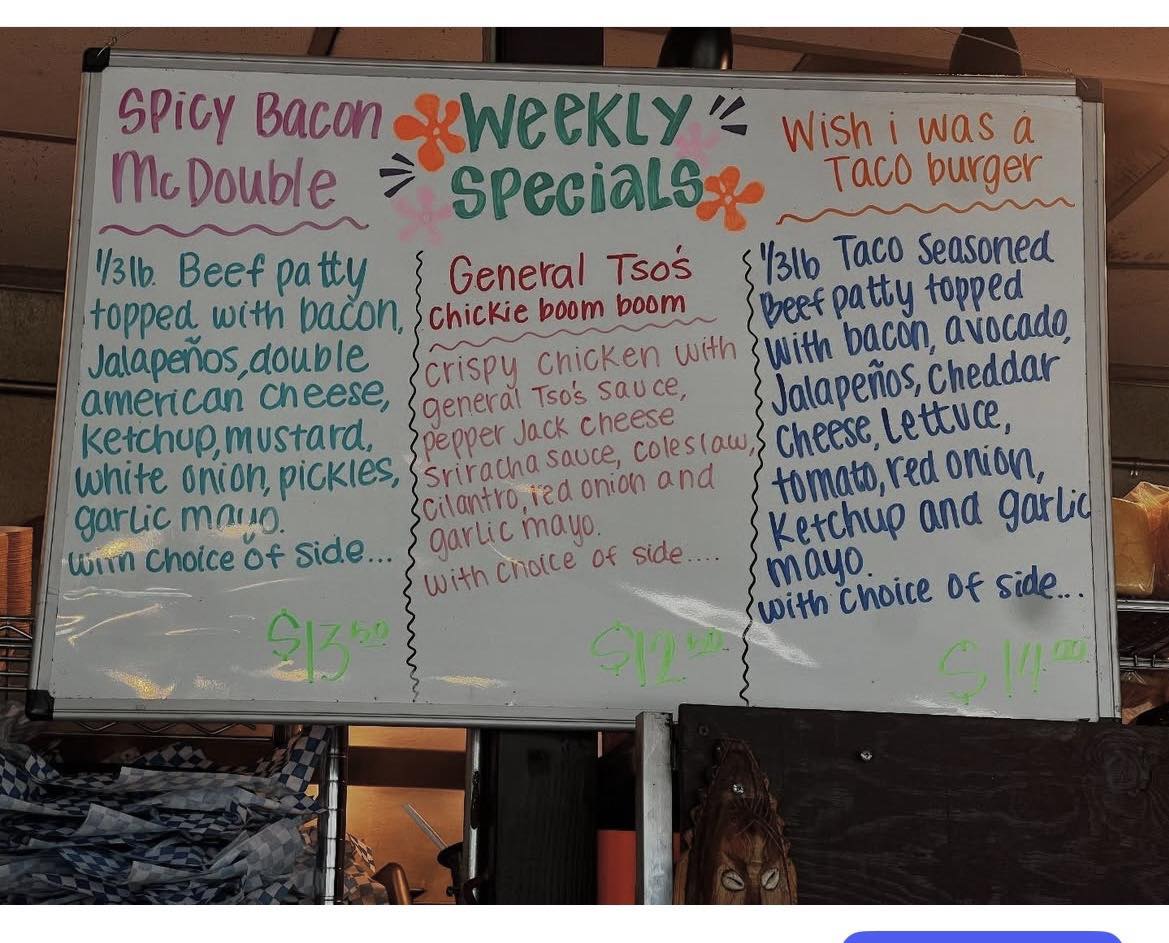 Weekly
Specials
Spicy Bacon
McDouble
1/3lb. Beef patty
topped with bacon,
Jalapeños, double
american cheese,
Ketchup, mustard,
white onion, pickles,
garlic mayo.
with choice of side...
$13.50
General Tso's
chickie boom boom
crispy chicken with
general Tso's sauce,
pepper Jack cheese
sriracha sauce, coleslaw,
cilantro, red onion and
garlic mayo.
with choice of side....
$12.50
Wish i was a
Taco burger
1/3lb Taco Seasoned
Beef patty topped
with bacon, avocado,
Jalapeños, cheddar
cheese, Lettuce,
tomato, red onion,
Ketchup and garlic
mayo.
with choice of side...
$14.00